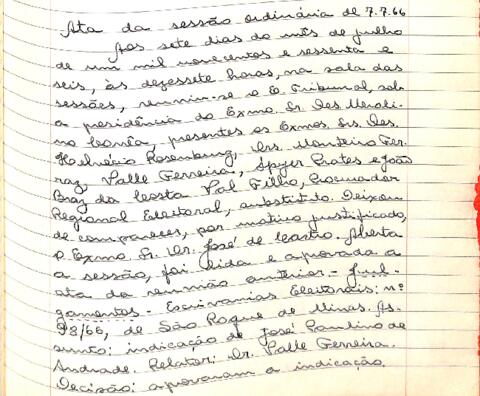 Ata da sessão ordinária de 7.7.66
Aos sete dias do mês de julho
de um mil novecentos e sessenta e
seis, às dezessete horas, na sala das
sessões, reuniu-se o E. Tribunal, sob
a presidência do Exmo. Sr. Des. Meroli-
no Corrêa, presentes os Exmos. Srs. Des.
Helvécio Rosenburg, Drs. Monteiro Fer-
raz, Valle Ferreira, Spyer Prates e João
Braz da Costa Val Filho, Procurador
Regional Eleitoral, substituto. Deixou
de comparecer, por motivo justificado,
o Exmo. Sr. Dr. José de Castro. Aberta
a sessão, foi lida e aprovada a
ata da reunião anterior. - Jul-
gamentos - Escrivanias Eleitorais: nº
98/66, de São Roque de Minas. As-
sunto: indicação de José Paulino de
Andrade. Relator: Dr. Valle Ferreira.
Decisão: aprovaram a indicação.